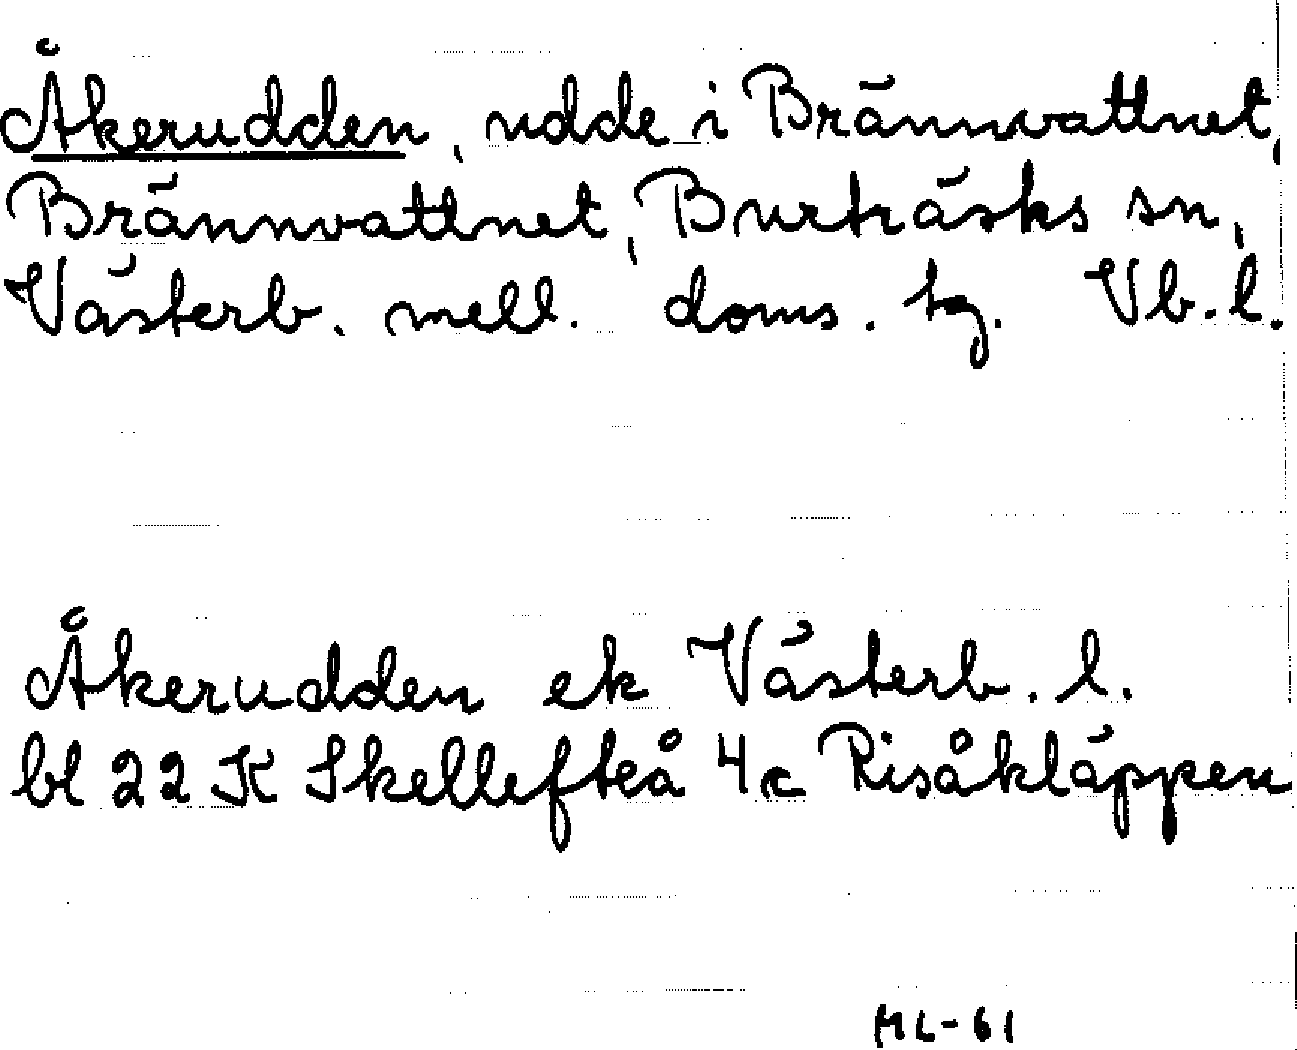 Åkerudden, udde i Brännvattnet,
Brännvattnet, Burträsks sn,
Västerb. mell. doms. tg. Vb. l.
Åkerudden ek Västerb. l.
bl 22 K Skellefteå 4c Risåkläppen
ML-61